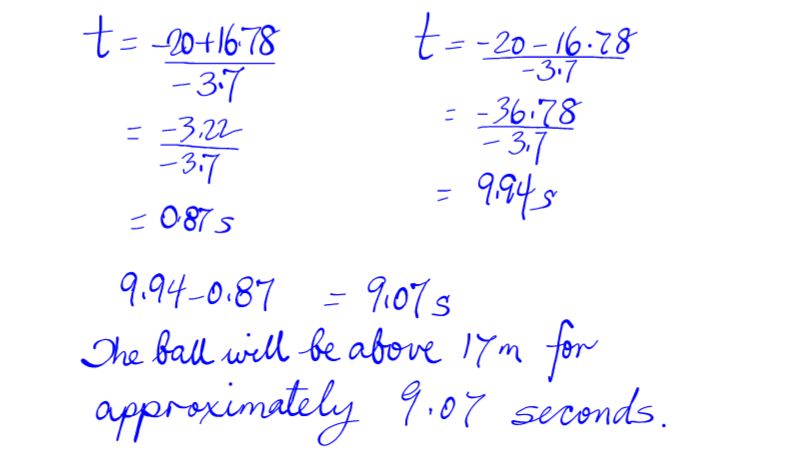 t = -20+16.78 / -3.7
t = -20-16.78 / -3.7
= -3.22 / -3.7
= -36.78 / -3.7
= 0.87 s
= 9.94 s
9.94-0.87 = 9.07 s
The ball will be above 17m for
approximately 9.07 seconds.